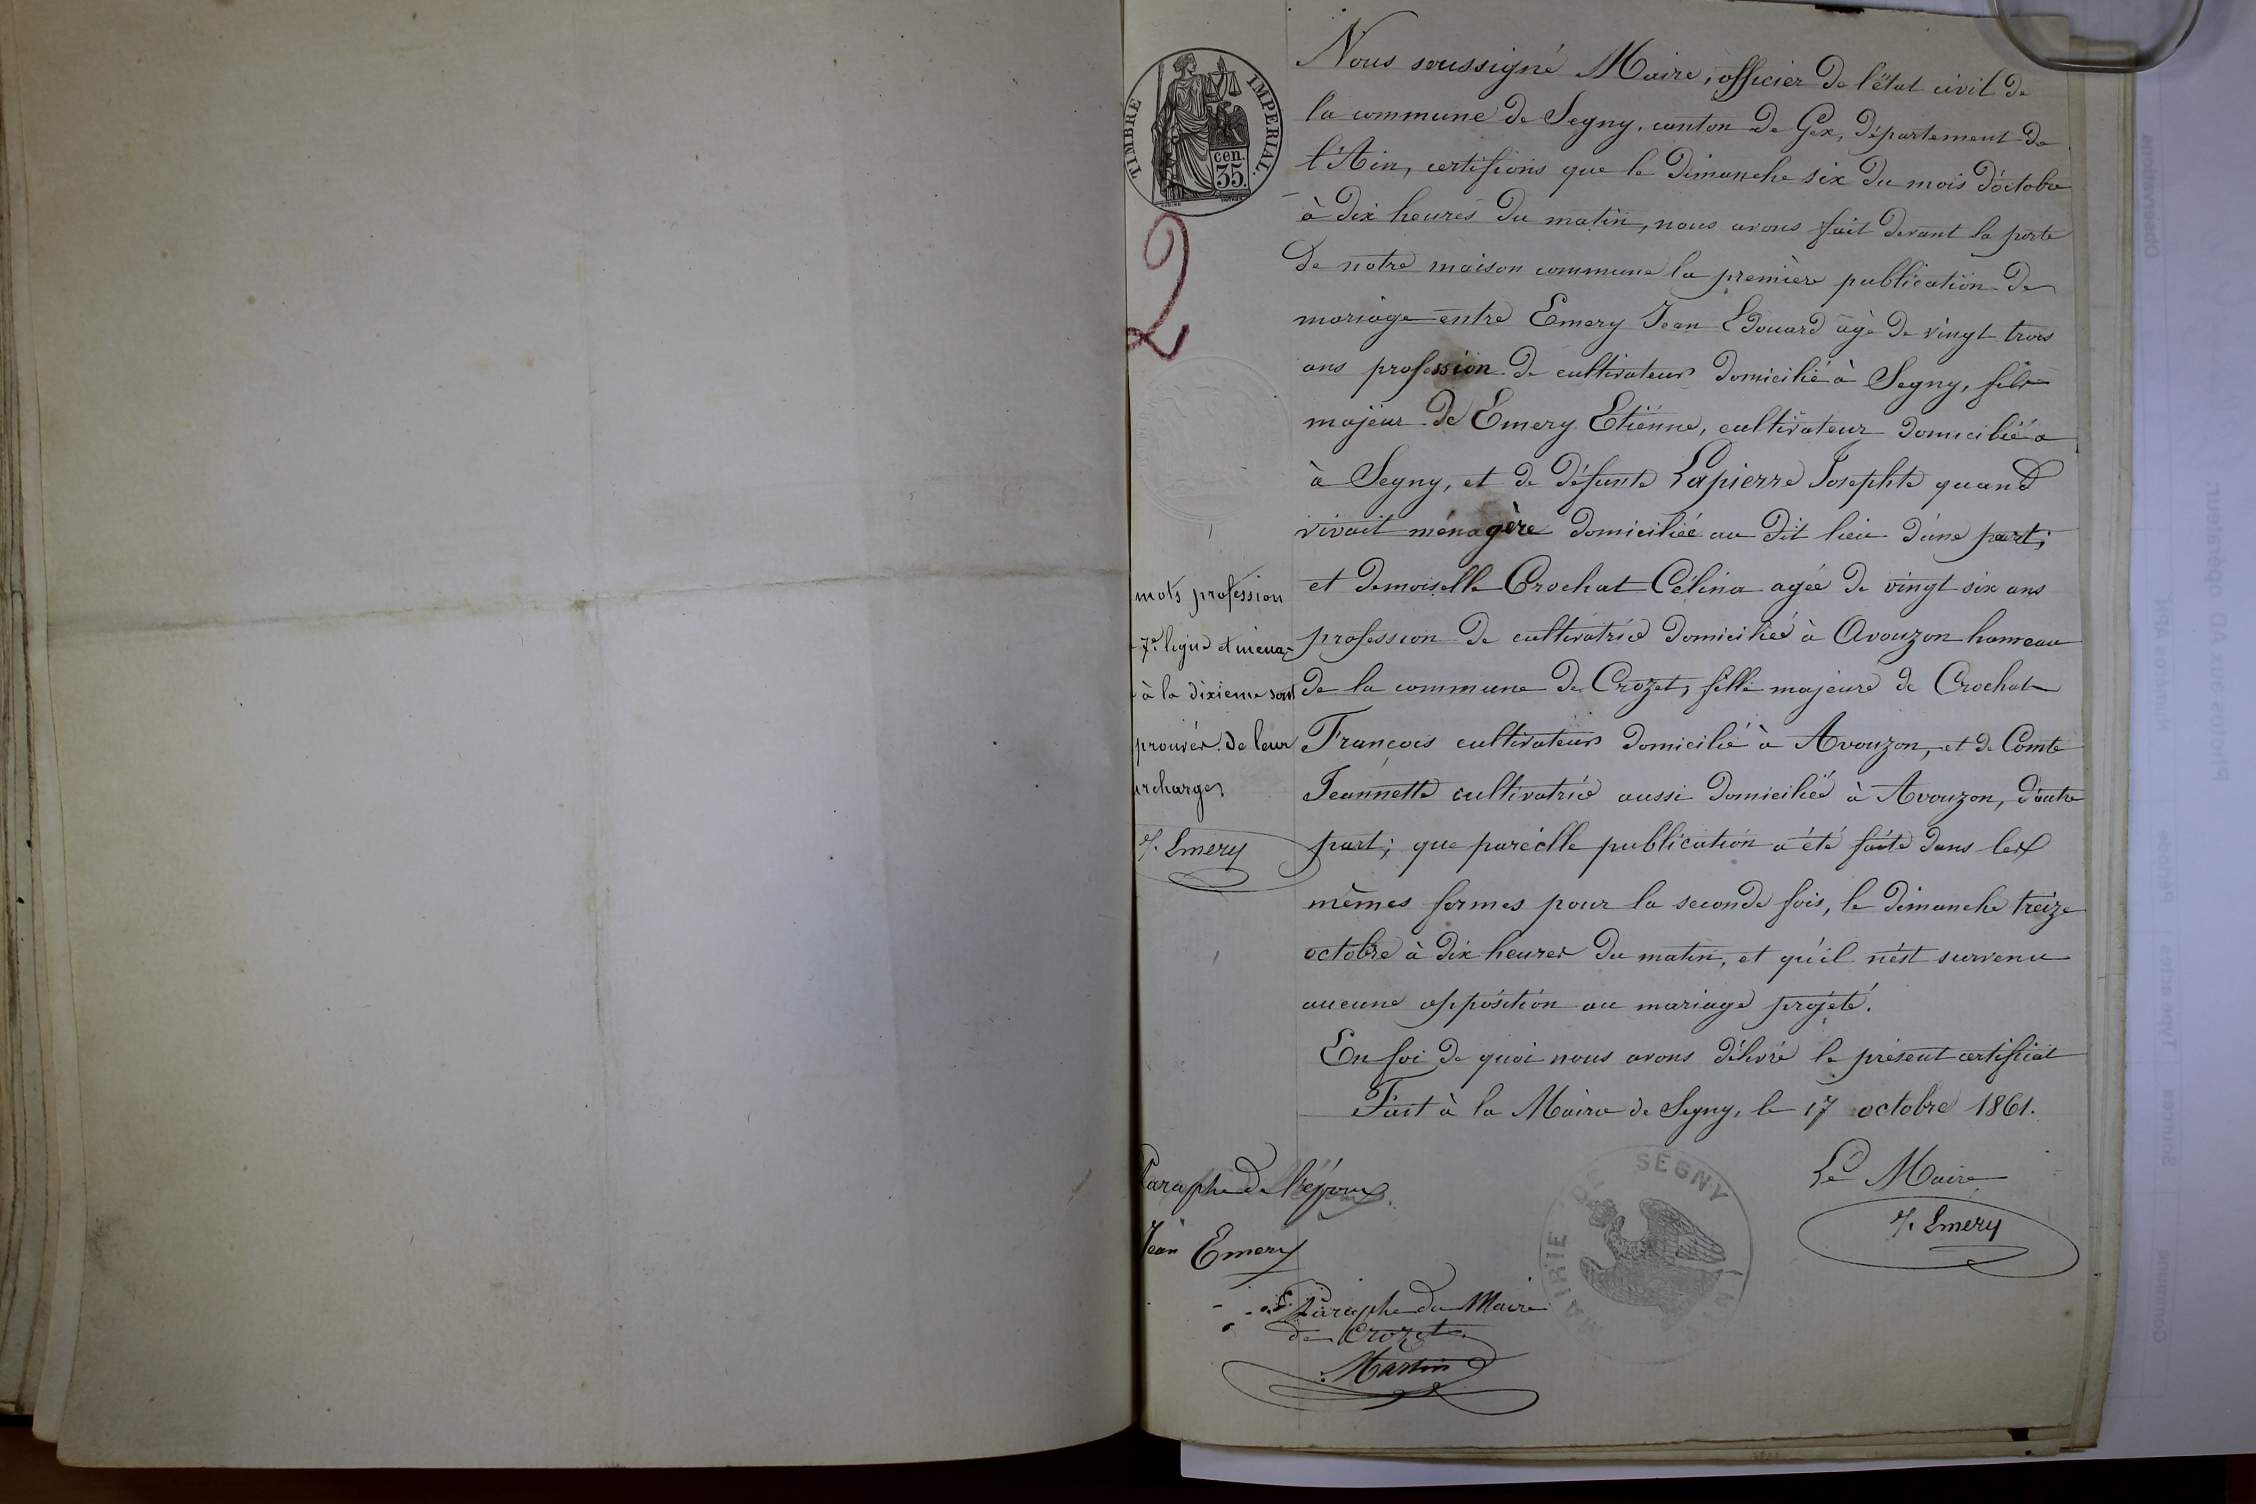 TIMBRE IMPERIAL.
cen.
35.
2
Nous soussigné Maire, officier de l'état civil de
la commune de Segny, canton de Gex, département de
l'Ain, certifions que le dimanche six du mois d'octobre
à dix heures du matin, nous avons fait devant la porte
de notre maison commune la première publication de
mariage entre Emery Jean Edouard âgé de vingt trois
ans profession de cultivateur domicilié à Segny, fils
majeur de Emery Etienne, cultivateur domicilié à
à Segny, et de défunte Lapierre Josephte quand
vivait ménagère domiciliée au dit lieu d'une part;
et demoiselle Crochat Célina agée de vingt six ans
profession de cultivatrice domiciliée à Avouzon hameau
de la commune de Crozet, fille majeure de Crochat
François cultivateur domicilié à Avouzon, et de Comte
Jeannette cultivatrice aussi domiciliée à Avouzon, d'autre
part; que pareille publication a été faite dans les
mêmes formes pour la seconde fois, le dimanche treize
octobre à dix heures du matin, et qu'il n'est survenu
aucune opposition au mariage projeté.
En foi de quoi nous avons délivré le présent certificat
Fait à la Mairie de Segny, le 17 octobre 1861.
mots profession
7e ligne et ména-
à la dixième sont
prouvés de leur
rcharges
J. Emery
Le Maire
J. Emery
MAIRIE DE SEGNY
Paraphe de l'époux.
Jean Emery
Paraphe du Maire
de Crozet
Martin